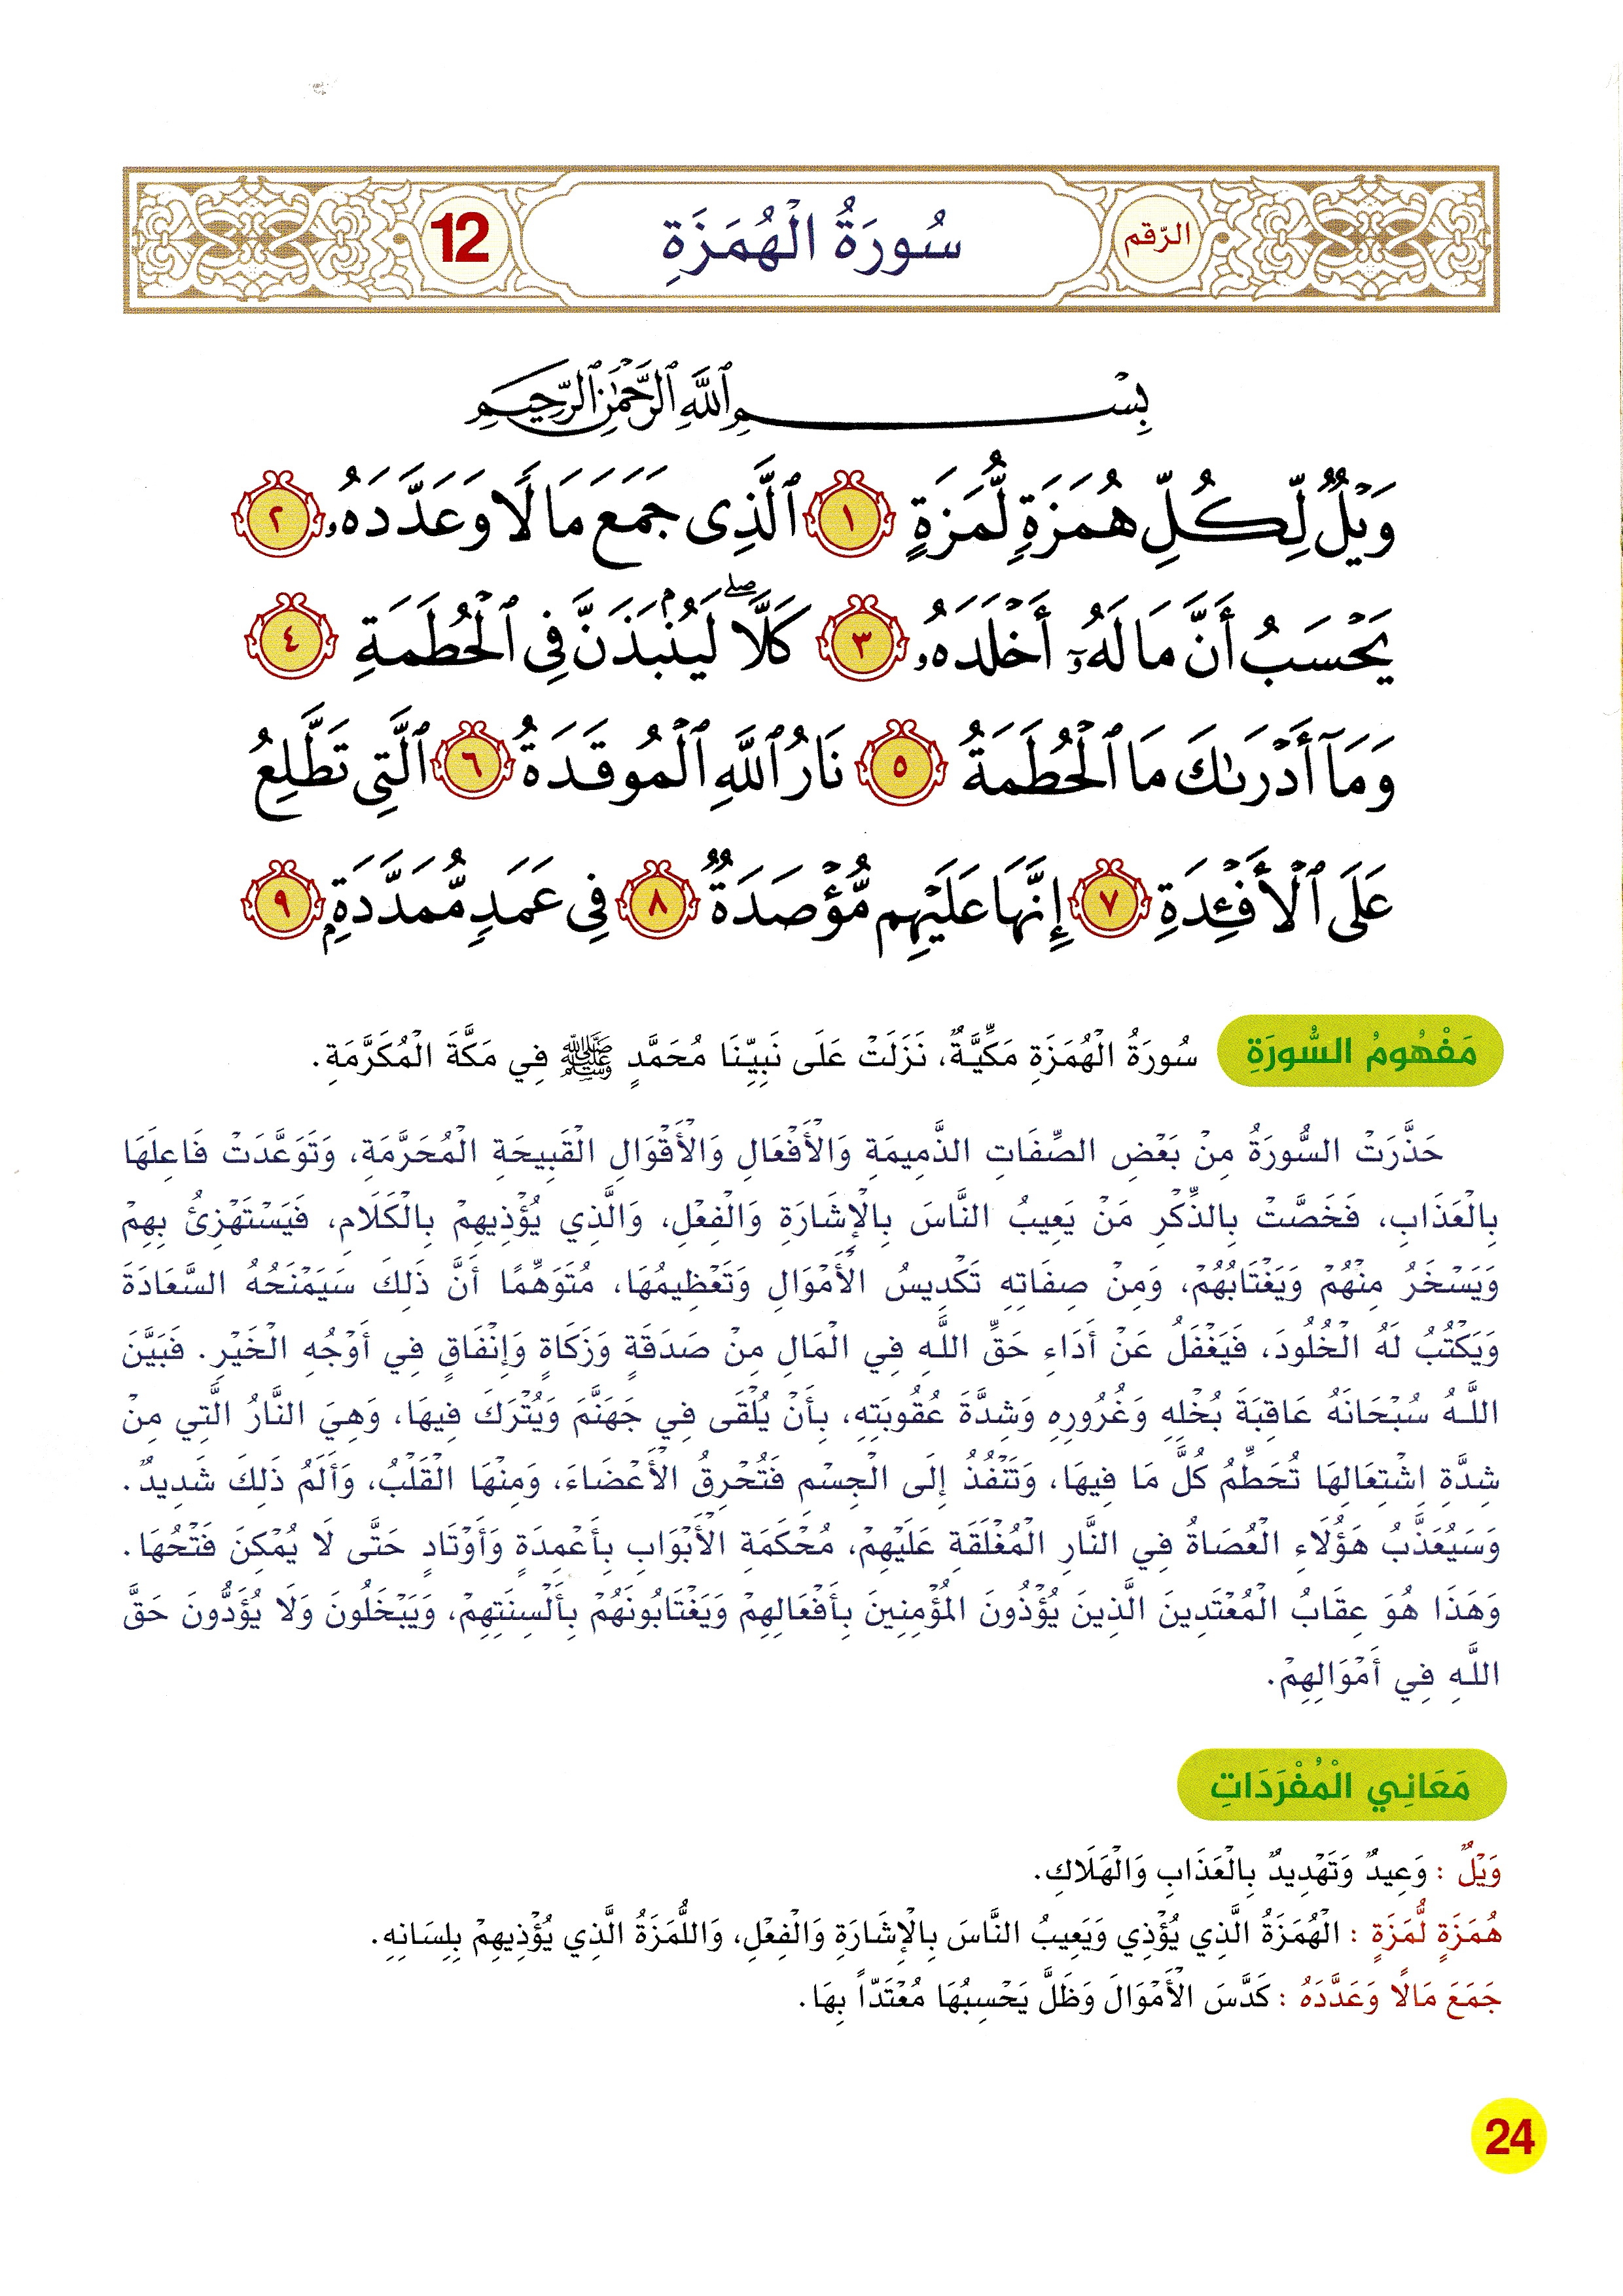 الرّقم سُورَةُ الْهُمَزَةِ 12
بِسْمِ ٱللَّهِ ٱلرَّحْمَٰنِ ٱلرَّحِيمِ
وَيْلٌ لِّكُلِّ هُمَزَةٍ لُّمَزَةٍ ١ ٱلَّذِى جَمَعَ مَالًا وَعَدَّدَهُۥ ٢
يَحْسَبُ أَنَّ مَالَهُۥٓ أَخْلَدَهُۥ ٣ كَلَّا ۖ لَيُنۢبَذَنَّ فِى ٱلْحُطَمَةِ ٤
وَمَآ أَدْرَىٰكَ مَا ٱلْحُطَمَةُ ٥ نَارُ ٱللَّهِ ٱلْمُوقَدَةُ ٦ ٱلَّتِى تَطَّلِعُ
عَلَى ٱلْأَفْـِٔدَةِ ٧ إِنَّهَا عَلَيْهِم مُّؤْصَدَةٌ ٨ فِى عَمَدٍ مُّمَدَّدَةٍۭ ٩
مَفْهُومُ السُّورَةِ سُورَةُ الْهُمَزَةِ مَكِّيَّةٌ، نَزَلَتْ عَلَى نَبِيِّنَا مُحَمَّدٍ ﷺ فِي مَكَّةَ الْمُكَرَّمَةِ.
حَذَّرَتْ السُّورَةُ مِنْ بَعْضِ الصِّفَاتِ الذَّمِيمَةِ وَالْأَفْعَالِ وَالْأَقْوَالِ الْقَبِيحَةِ الْمُحَرَّمَةِ، وَتَوَعَّدَتْ فَاعِلَهَا
بِالْعَذَابِ، فَخَصَّتْ بِالذِّكْرِ مَنْ يَعِيبُ النَّاسَ بِالْإِشَارَةِ وَالْفِعْلِ، وَالَّذِي يُؤْذِيهِمْ بِالْكَلَامِ، فَيَسْتَهْزِئُ بِهِمْ
وَيَسْخَرُ مِنْهُمْ وَيَغْتَابُهُمْ، وَمِنْ صِفَاتِهِ تَكْدِيسُ الْأَمْوَالِ وَتَعْظِيمُهَا، مُتَوَهِّمًا أَنَّ ذَلِكَ سَيَمْنَحُهُ السَّعَادَةَ
وَيَكْتُبُ لَهُ الْخُلُودَ، فَيَغْفَلُ عَنْ أَدَاءِ حَقِّ اللَّهِ فِي الْمَالِ مِنْ صَدَقَةٍ وَزَكَاةٍ وَإِنْفَاقٍ فِي أَوْجُهِ الْخَيْرِ. فَبَيَّنَ
اللَّهُ سُبْحَانَهُ عَاقِبَةَ بُخْلِهِ وَغُرُورِهِ وَشِدَّةَ عُقُوبَتِهِ، بِأَنْ يُلْقَى فِي جَهَنَّمَ وَيُتْرَكَ فِيهَا، وَهِيَ النَّارُ الَّتِي مِنْ
شِدَّةِ اشْتِعَالِهَا تُحَطِّمُ كُلَّ مَا فِيهَا، وَتَنْفُذُ إِلَى الْجِسْمِ فَتُحْرِقُ الْأَعْضَاءَ، وَمِنْهَا الْقَلْبُ، وَأَلَمُ ذَلِكَ شَدِيدٌ.
وَسَيُعَذَّبُ هَؤُلَاءِ الْعُصَاةُ فِي النَّارِ الْمُغْلَقَةِ عَلَيْهِمْ، مُحْكَمَةِ الْأَبْوَابِ بِأَعْمِدَةٍ وَأَوْتَادٍ حَتَّى لَا يُمْكِنَ فَتْحُهَا.
وَهَذَا هُوَ عِقَابُ الْمُعْتَدِينَ الَّذِينَ يُؤْذُونَ الْمُؤْمِنِينَ بِأَفْعَالِهِمْ وَيَغْتَابُونَهُمْ بِأَلْسِنَتِهِمْ، وَيَبْخَلُونَ وَلَا يُؤَدُّونَ حَقَّ
اللَّهِ فِي أَمْوَالِهِمْ.
مَعَانِي الْمُفْرَدَاتِ
وَيْلٌ : وَعِيدٌ وَتَهْدِيدٌ بِالْعَذَابِ وَالْهَلَاكِ.
هُمَزَةٍ لُّمَزَةٍ : الْهُمَزَةُ الَّذِي يُؤْذِي وَيَعِيبُ النَّاسَ بِالْإِشَارَةِ وَالْفِعْلِ، وَاللُّمَزَةُ الَّذِي يُؤْذِيهِمْ بِلِسَانِهِ.
جَمَعَ مَالًا وَعَدَّدَهُ : كَدَّسَ الْأَمْوَالَ وَظَلَّ يَحْسِبُهَا مُعْتَدّاً بِهَا.
24